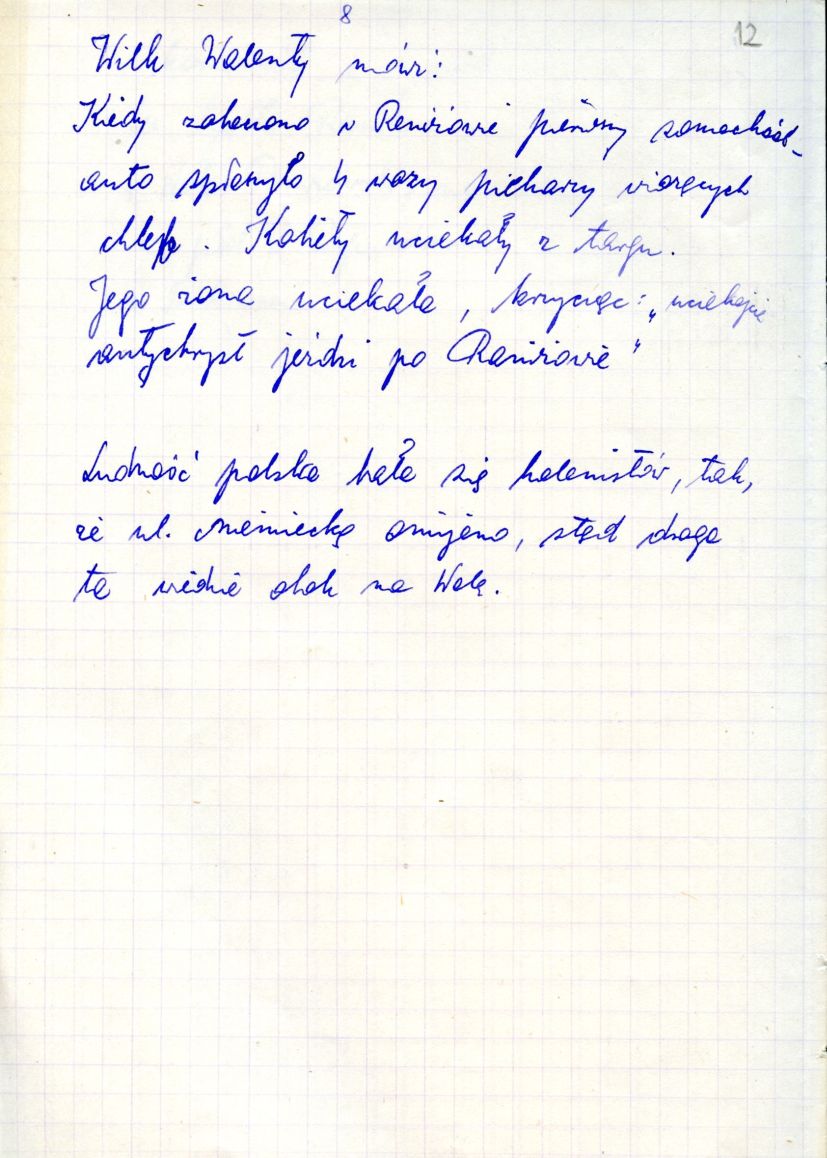 8
12
Wilk Walenty mówi:
Kiedy zobaczono w Raniżowie pierwszy samochód -
auto spłoszyło 4 wozy piekarzy wiozących
chleb. Kobiety uciekały z targu.
Jego żona uciekała, krzycząc: „uciekajcie
antychryst jeździ po Raniżowie"
Ludność polska bała się kolonistów, tak,
że ul. niemiecką omijano, stąd droga
ta wiedzie obok na Wolę.